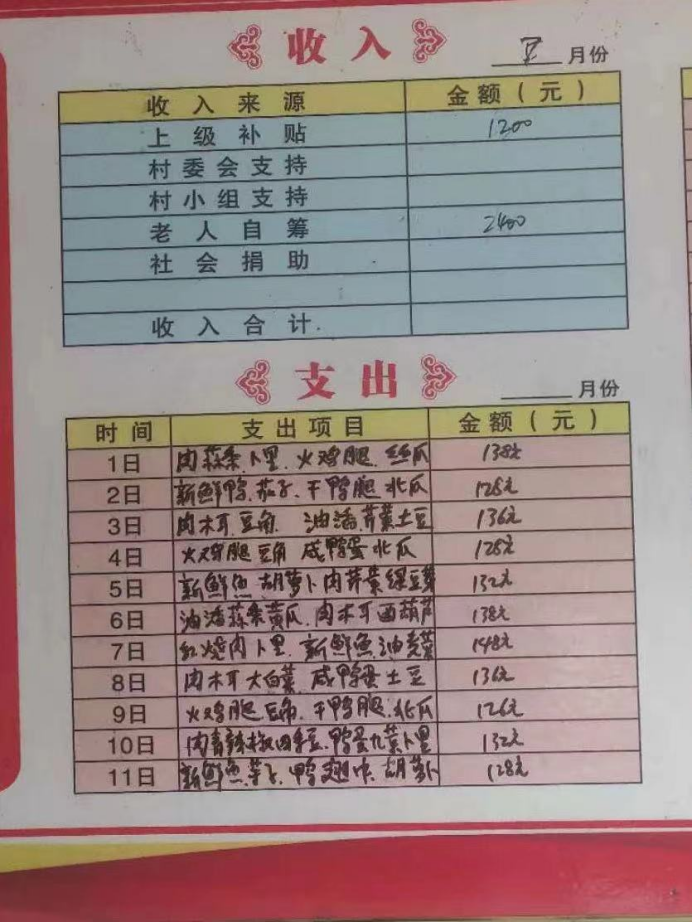 收入 月份
收入来源 金额(元)
上级补贴 1200
村委会支持
村小组支持
老人自筹 2400
社会捐助
收入合计.
支出 月份
时间 支出项目 金额(元)
1日 肉蒜条卜里.火鸡腿.丝瓜 138元
2日 新鲜鸭.茄子.干鸭腿北瓜 128元
3日 肉木耳.豆角 油潘芹菜土豆 136元
4日 火鸡腿豆角 咸鸭蛋北瓜 128元
5日 新鲜鱼.胡萝卜肉芹菜绿豆芽 132元
6日 油潘蒜条黄瓜.肉木耳西葫芦 138元
7日 红烧肉卜里.新鲜鱼油麦菜 148元
8日 肉木耳大白菜.咸鸭蛋土豆 136元
9日 火鸡腿豆角.干鸭腿.北瓜 126元
10日 肉青辣椒四季豆.鸭蛋九菜卜里 132元
11日 新鲜鱼.茄子.鸭翅中.胡萝卜 128元